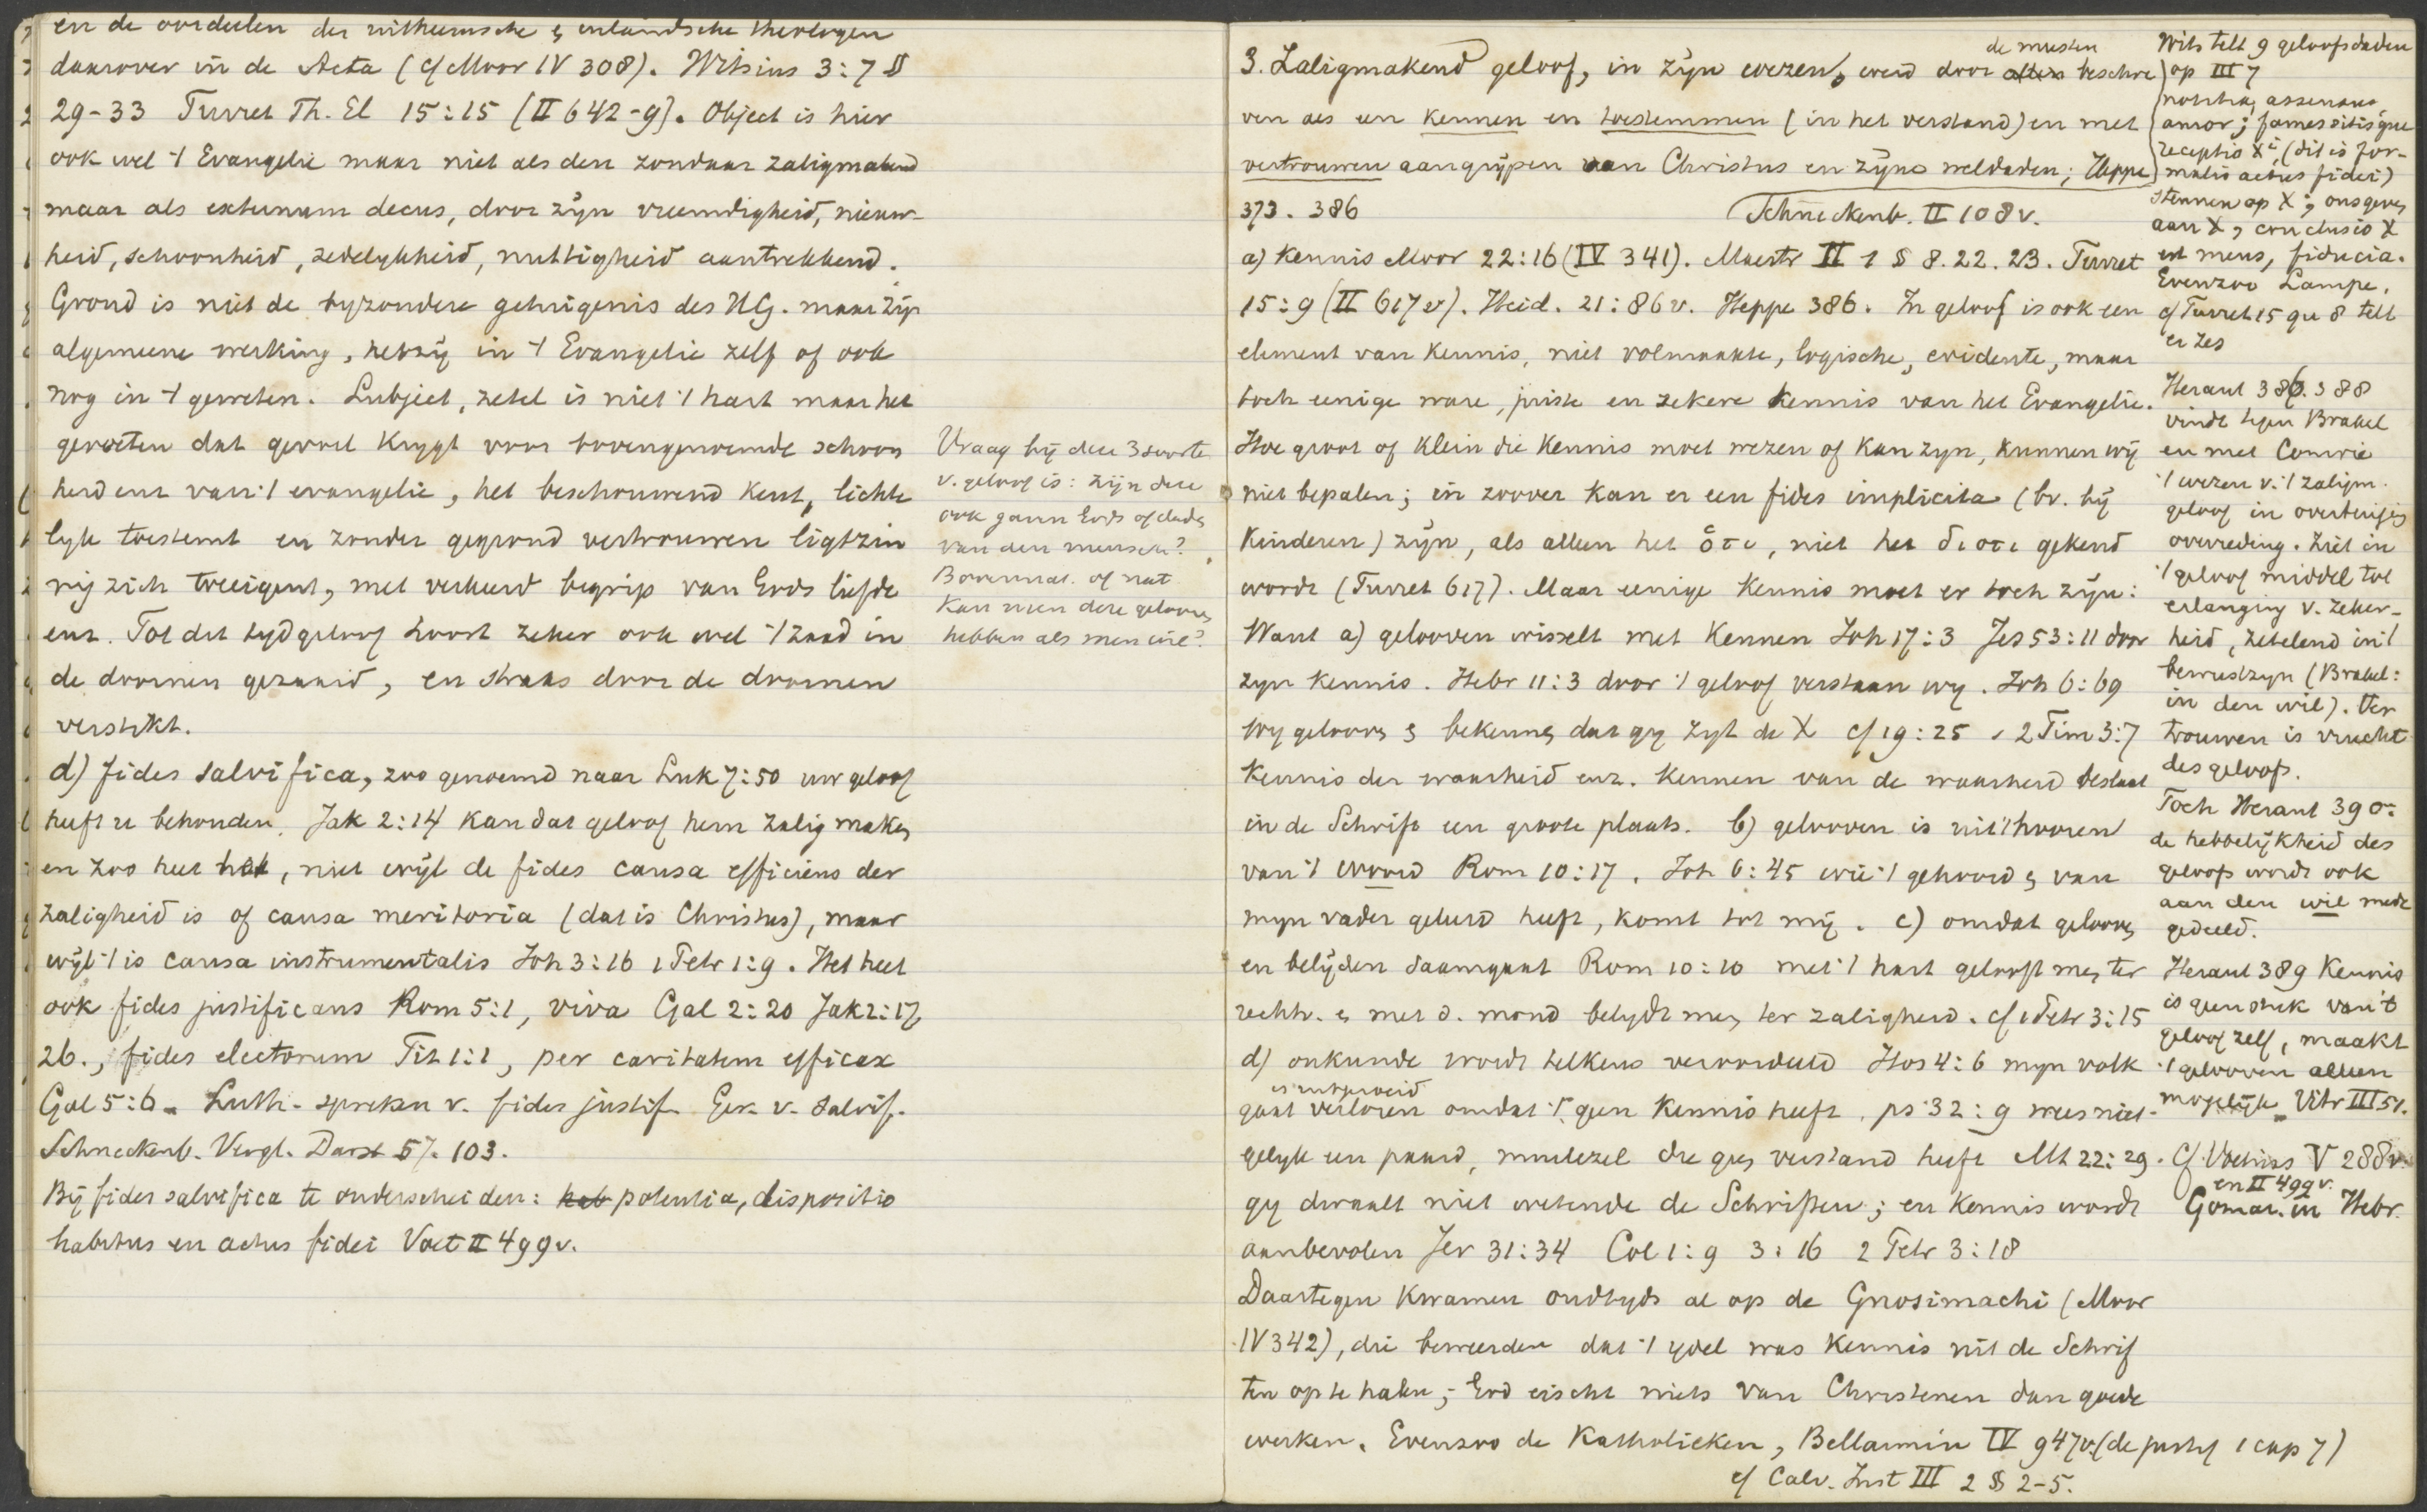 en de oordeelen der uitheemsche & inlandsche theologen
daarover in de Acta (cf Moor IV 308). Witsius 3:7 §
29-33 Turret Th. El 15:15 (II 642-9). Object is hier
ook wel 't Evangelie maar niet als den zondaar zaligmakend
maar als externum decus, door zijn vreemdigheid, nieuw-
heid, schoonheid, zedelykheid, nuttigheid aantrekkend.
Grond is niet de byzondere getuigenis des HG. maar zijn
algemeene werking, hetzij in 't Evangelie zelf of ook
nog in 't geweten. Subject, zetel is niet 't hart maar het
geweten dat gevoel krygt voor bovengenoemde schoon
heid enz van 't evangelie, het beschouwend kent, lichte
lyk toestemt en zonder gegrond vertrouwen ligtzin
nig zich toeeigent, met verkeerd begrip van Gods liefde
enz. Tot dit tydgeloof hoort zeker ook wel 't zaad in
de doornen gezaaid, en straks door de doornen
verstikt.
d) fides salvifica, zoo genoemd naar Luk 7:50 uw geloof
heeft u behouden. Jak 2:14 kan dat geloof hem zalig maken
en zoo heet het, niet wijl de fides causa efficiens der
zaligheid is of causa meritoria (dat is Christus), maar
wijl 't is causa instrumentalis Joh 3:16 1 Petr 1:9. Het heet
ook fides justificans Rom 5:1, viva Gal 2:20 Jak 2:17,
26., fides electorum Tit 1:1, per caritatem efficax
Gal 5:6. Luth. spreken v. fides justif. Ger. v. salvif.
Schneckenb. Vergl. Darst 57. 103.
Bij fides salvifica te onderscheiden: hab potentia, dispositio
habitus en actus fidei Voet II 499v.
Vraag bij deze 3 soorten
v. geloof is: zijn deze
ook gaven Gods of daden
van den mensch?
Bovennat. of nat.
Kan men deze gelooven
hebben als men wil?
3. Zaligmakend geloof, in zijn wezen, werd door allen de meesten beschre
ven als een kennen en toestemmen (in het verstand) en met
vertrouwen aangrijpen van Christus en zijne weldaden; Heppe
373. 386 Schneckenb. II 108v.
a) Kennis Moor 22:16 (IV 341). Mastr II 1 § 8. 22. 23. Turret
15:9 (II 617v). Heid. 21:86v. Heppe 386. In geloof is ook een
element van kennis, niet volmaakte, logische, evidente, maar
toch eenige ware, juiste en zekere kennis van het Evangelie.
Hoe groot of klein die kennis moet wezen of kan zyn, kunnen wij
niet bepalen; in zoover kan er een fides implicita (bv. bij
kinderen) zijn, als alleen het ὅτι, niet het διοτι gekend
wordt (Turret 617). Maar eenige kennis moet er toch zijn:
Want a) gelooven wisselt met kennen Joh 17:3 Jes 53:11 door
zyn kennis. Hebr 11:3 door 't geloof verstaan wy. Joh 6:69
wy gelooven & bekennen dat gy zyt de X cf 19:25 . 2 Tim 3:7
kennis der waarheid enz. Kennen van de waarheid beslaat
in de Schrift een groote plaats. b) gelooven is uit 't hooren
van 't woord Rom 10:17. Joh 6:45 wie 't gehoord & van
myn vader geleerd heeft, komt tot mij. c) omdat gelooven
en belijden saamgaat Rom 10:10 met 't hart gelooft men ter
rechtv. & met d. mond belydt men ter zaligheid. cf 1 Petr 3:15
d) onkunde wordt telkens veroordeeld Hos 4:6 myn volk
is uitgeroeid
gaat verloren omdat 't geen kennis heeft. ps 32:9 wees niet
gelyk een paard, muilezel die geen verstand heeft Mt 22:29.
gy dwaalt niet wetende de Schriften; en kennis wordt
aanbevolen Jer 31:34 Col 1:9 3:16 2 Petr 3:18
Daartegen kwamen oudtyds al op de Gnosimachi (Moor
IV 342), die beweerden dat 't ydel was kennis uit de Schrif
ten op te halen; God eischt niets van Christenen dan goede
werken. Evenzoo de Katholieken, Bellarmin IV 947v. (de justif 1 cap 7)
cf Calv. Inst III 2 § 2-5.
Wits telt 9 geloofsdaden
op III 7
notitia, assensus,
amor; fames sitisque
receptio Xi, (dit is for-
malis actus fidei)
steunen op X; onsgeven
aan X, conclusio X
est meus, fiducia.
Evenzoo Lampe.
cf Turret 15 qu 8 telt
er zes
Heraut 386. 388
vindt tegen Brakel
en met Comrie
't wezen v. 't zaligm.
geloof in overtuiging
overreding. Ziet in
't geloof middel tot
erlanging v. zeker-
heid, zetelend in 't
bewustzyn (Brakel:
in den wil). Ver
trouwen is vrucht
des geloofs.
Toch Heraut 390:
de hebbelijkheid des
geloofs wordt ook
aan den wil mede
gedeeld.
Heraut 389 Kennis
is geen stuk van 't
geloof zelf, maakt
't gelooven alleen
mogelijk. Vitr III 51.
Cf. Voetius V 288v.
en II 499v.
Gomar. in Hebr.